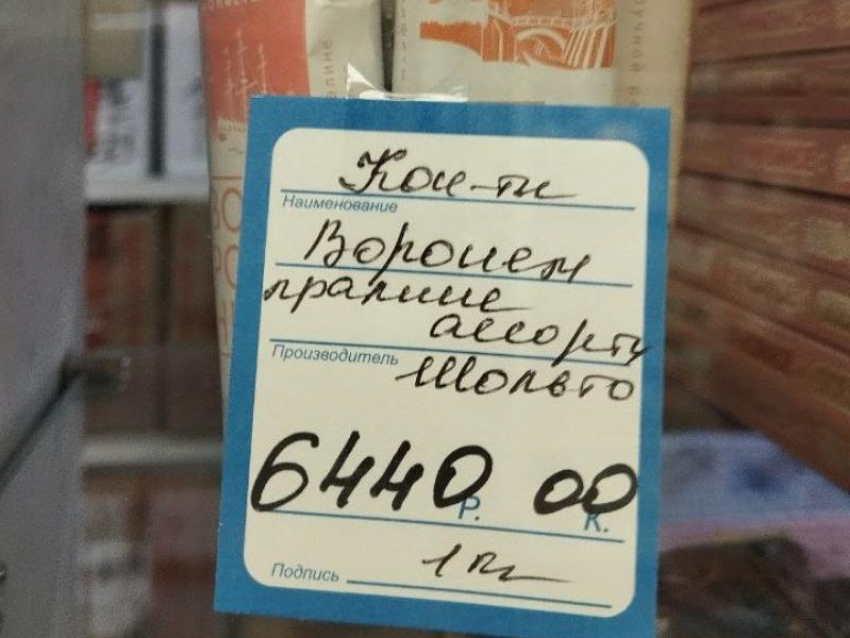 Кон-ты
Наименование
Воронеж
пралине
ассорти
Производитель
6440 Р. 00 К.
Подпись 1 кг
ВО
РО